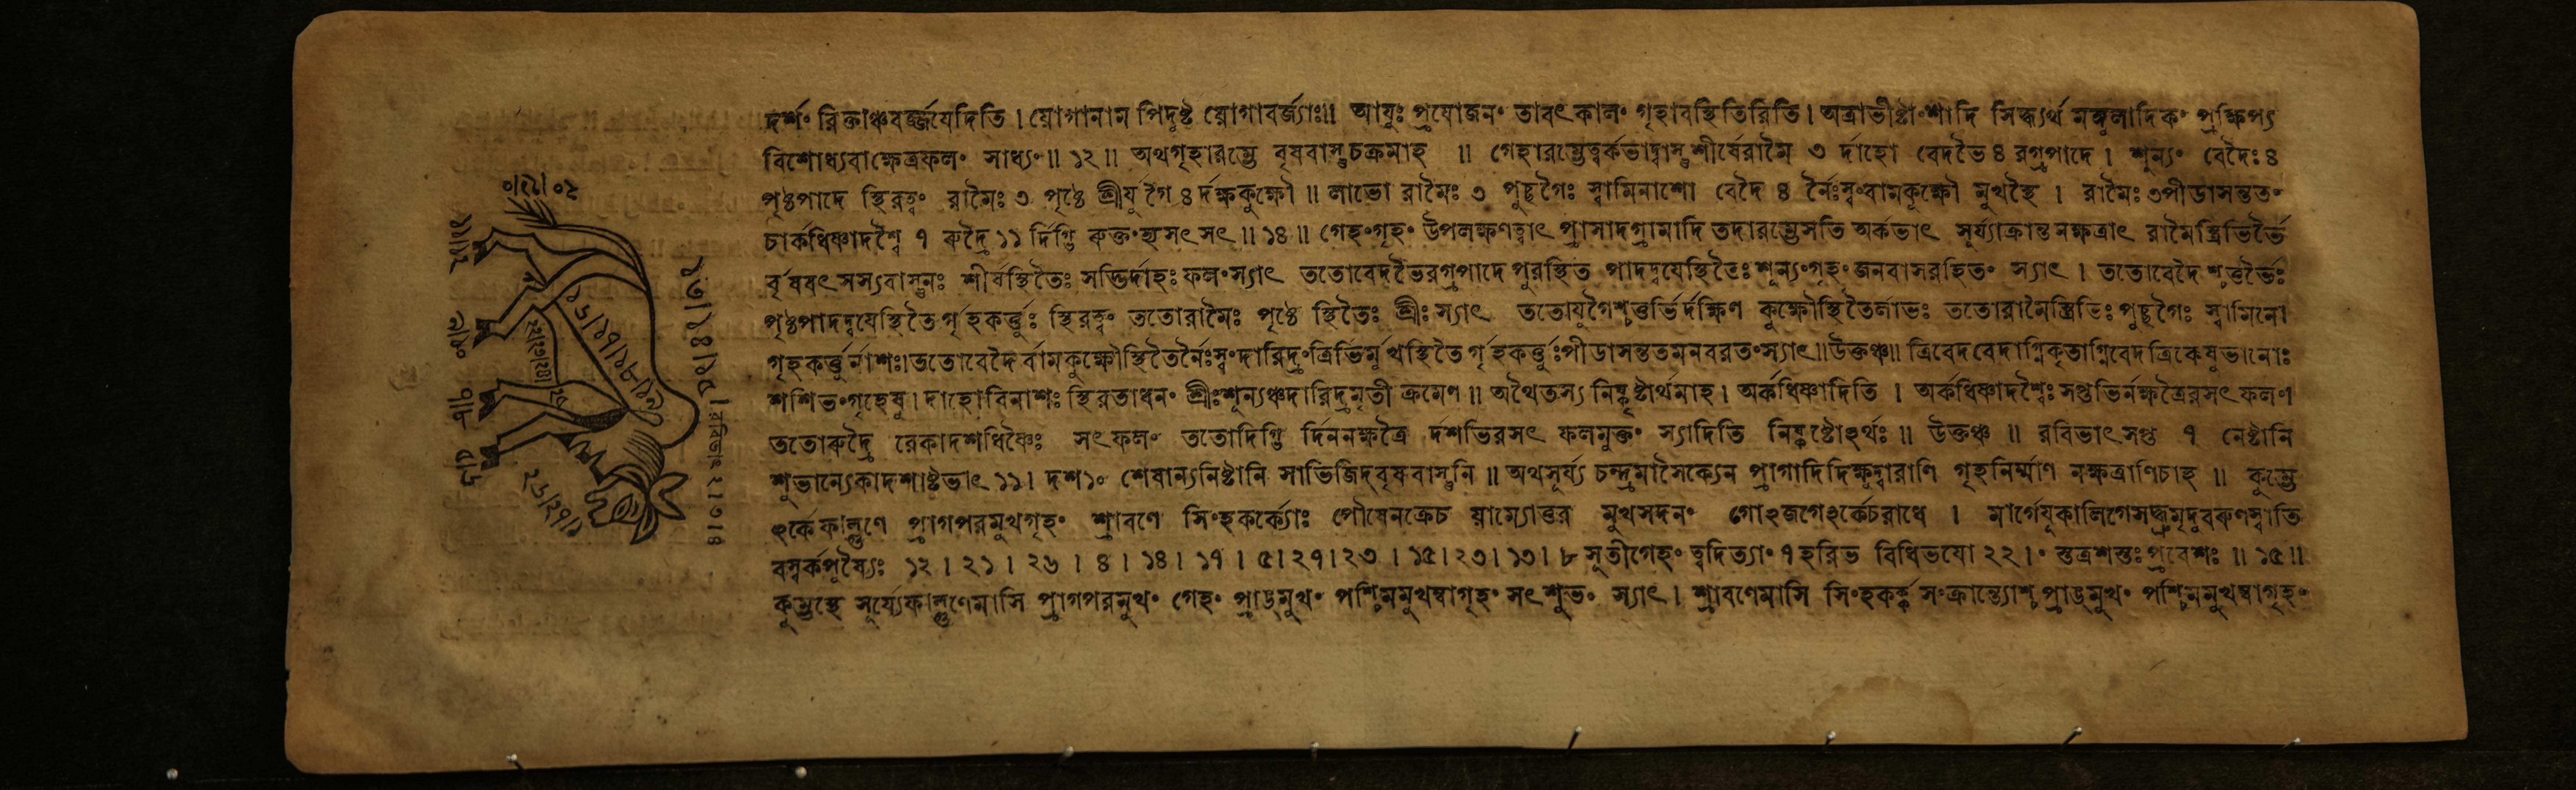 দর্শং রিক্তাঞ্চবর্জ্জযেদিতি । য়োগানাম পিদুষ্ট য়োগাবর্জ্যাঃ॥ আযুঃ প্রযোজনং তাবৎকালং গৃহাবস্থিতিরিতি । অত্রাভীষ্টাংশাদি সিদ্ধ্যর্থ মঙ্গুলাদিকং প্রক্ষিপ্য
বিশোধ্যবাক্ষেত্রফলং সাধ্যং॥ ১২॥ অথগৃহারম্ভে বৃষবাস্তুচক্রমাহ ॥ গেহারম্ভেত্বর্কভাদ্বাস্তুশীর্ষেরামৈ ৩ র্দাহো বেদভৈ ৪ রগ্রপাদে । শূন্যং বেদৈঃ ৪
পৃষ্ঠপাদে স্থিরত্বং রামৈঃ ৩ পৃষ্ঠে শ্রীযু গৈ ৪ র্দক্ষকুক্ষৌ ॥ লাভো রামৈঃ ৩ পুচ্ছগৈঃ স্বামিনাশো বেদৈ ৪ র্নৈঃস্বংবামকুক্ষৌ মুখস্থৈ । রামৈঃ ৩পীডাসন্ততং
চার্কধিষ্ণাদশ্বৈ ৭ রুদ্রৈ ১১ র্দিগ্ভি রুক্তংহ্যসৎসৎ॥ ১৪॥ গেহংগৃহং উপলক্ষণত্বাৎ প্রাসাদগ্রামাদি তদারম্ভেসতি অর্কভাৎ সূর্য্যাক্রান্তনক্ষত্রাৎ রামৈস্ত্রিভির্ভৈ
র্বৃষবৎসস্যবাস্তুনঃ শীর্ষস্থিতৈঃ সদ্ভির্দাহঃ ফলংস্যাৎ ততোবেদভৈরগ্রপাদে পুরস্থিত পাদদ্বযেস্থিতৈঃ শূন্যংগৃহং জনবাসরহিতং স্যাৎ । ততোবেদৈ শ্চতুর্ভৈঃ
পৃষ্ঠপাদদ্বযেস্থিতৈ র্গৃহকর্ত্তুঃ স্থিরত্বং ততোরামৈঃ পৃষ্ঠে স্থিতৈঃ শ্রীঃ স্যাৎ ততোযুগৈশ্চতুর্ভির্দক্ষিণ কুক্ষৌস্থিতৈর্লাভঃ ততোরামৈস্ত্রিভিঃ পুচ্ছগৈঃ স্বামিনো
গৃহকর্ত্তুর্নাশঃ।ততোবেদৈ র্বামকুক্ষৌস্থিতৈর্নৈঃস্বংদারিদ্রংত্রিভির্মুখস্থিতৈ র্গৃহকর্ত্তুঃপীডাসন্ততমনবরতংস্যাৎ॥উক্তঞ্চ॥ ত্রিবেদবেদাগ্নিকৃতাগ্নিবেদত্রিকেষুভানোঃ
শশিভংগৃহেষু । দাহোবিনাশঃ স্থিরতাধনং শ্রীঃশূন্যঞ্চদারিদ্রমৃতী ক্রমেণ ॥ অথৈতস্য নিষ্কৃষ্টার্থমাহ । অর্কধিষ্ণাদিতি । অর্কধিষ্ণাদশ্বৈঃ সপ্তভির্নক্ষত্রৈরসৎ ফলণ
ততোরুদ্রৈ রেকাদশধিষ্ণৈঃ সৎফলং ততোদিগ্ভি র্দিননক্ষত্রৈ র্দশভিরসৎ ফলমুক্তং স্যাদিতি নিষ্কৃষ্টোঽর্থঃ ॥ উক্তঞ্চ ॥ রবিভাৎসপ্ত ৭ নেষ্টানি
শুভান্যেকাদশাষ্টভাৎ ১১। দশ১০ শেষান্যনিষ্টানি সাভিজিদ্বৃষবাস্তুনি ॥ অথসূর্য্য চন্দ্রমাসৈক্যেন প্রাগাদিদিক্ষুদ্বারাণি গৃহনির্ম্মাণ নক্ষত্রাণিচাহ ॥ কুম্ভে
ঽর্কেফাল্গুণে প্রাগপরমুখগৃহং শ্রাবণে সিংহকর্ক্যোঃ পৌষেনক্রেচ য়াম্যোত্তর মুখসদনং গোঽজগেঽর্কেচরাধে । মার্গেযূকালিগেসদ্ধ্রুমৃদুবরুণস্বাতি
বস্বর্কপুষ্যৈঃ ১২ । ২১ । ২৬ । ৪ । ১৪ । ১৭ । ৫ । ২৭ । ২৩ । ১৫ । ২৩ । ১৩ । ৮ সূতীগেহং ত্বদিত্যাং ৭ হরিভ বিধিভযো ২২ ।০ স্তত্রশস্তঃ প্রবেশঃ ॥ ১৫॥
কুম্ভস্থে সূর্য্যেফাল্গুণেমাসি প্রাগপরমুখং গেহং প্রাঙ্মুখং পশ্চিমমুখম্বাগৃহং সৎশুভং স্যাৎ । শ্রাবণেমাসি সিংহকর্ক সংক্রান্ত্যোশ্চ প্রাঙ্মুখং পশ্চিমমুখম্বাগৃহং